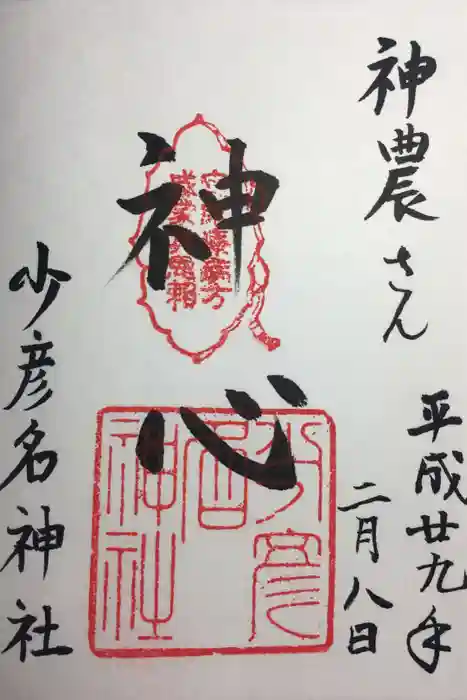 神農さん
平成廿九年
二月八日
神心
少彦名神社
少彦名神社